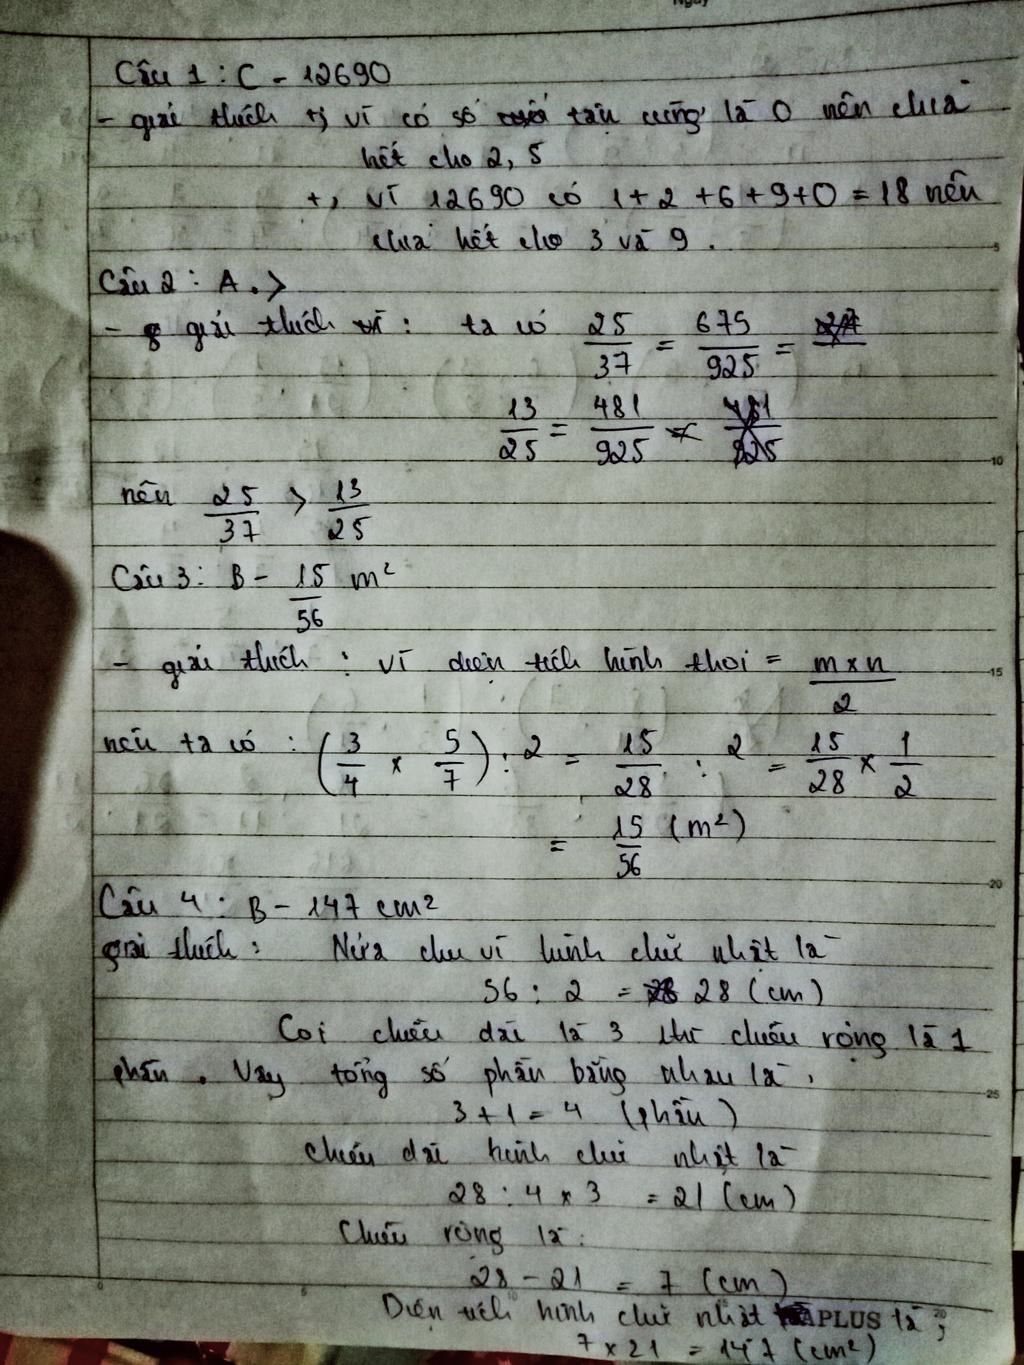 Ngày
Câu 1 : C - 12690
- giải thích +, vì có số tận cùng là 0 nên chia
hết cho 2, 5
+, vì 12690 có 1 + 2 + 6 + 9 + 0 = 18 nên
chia hết cho 3 và 9 .
5
Câu 2 : A . >
- giải thích : ta có 25/37 = 675/925 =
13/25 = 481/925
10
nên 25/37 > 13/25
Câu 3 : B - 15/56 m²
- giải thích : vì diện tích hình thoi = m x n / 2
15
nên ta có : (3/4 x 5/7) : 2 = 15/28 : 2 = 15/28 x 1/2
= 15/56 (m²)
20
Câu 4 : B - 147 cm²
giải thích : Nửa chu vi hình chữ nhật là
56 : 2 = 28 (cm)
Coi chiều dài là 3 thì chiều rộng là 1
phần . Vậy tổng số phần bằng nhau là ,
25
3 + 1 = 4 (phần)
chiều dài hình chữ nhật là
28 : 4 x 3 = 21 (cm)
Chiều rộng là :
28 - 21 = 7 (cm)
Diện tích hình chữ nhật APLUS là ;
7 x 21 = 147 (cm²)